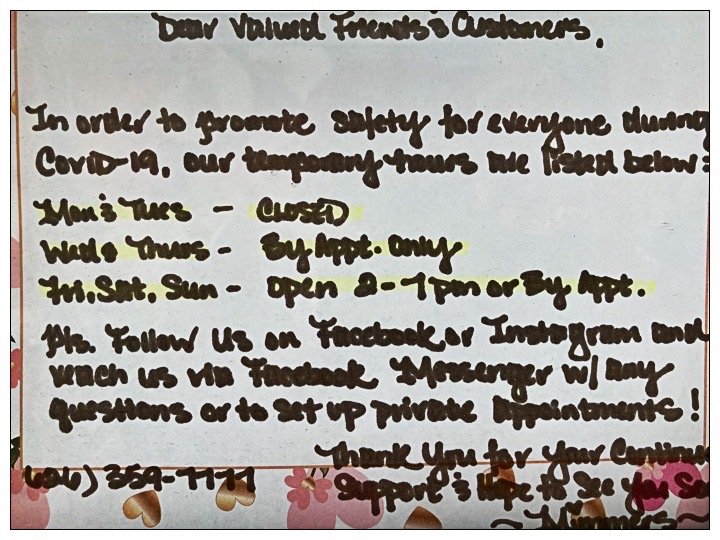 Dear Valued Friends & Customers,
In order to promote safety for everyone during
Covid-19, our temporary hours are listed below:
Mon & Tues - CLOSED
Wed & Thurs - By Appt. only
Fri, Sat, Sun - Open 2-7pm or By Appt.
Pls. Follow Us on Facebook or Instagram and
reach us via Facebook Messenger w/ any
questions or to set up private Appointments!
Thank You for Your Continue
626) 359-7777
Support & Hope to See You So
~Mimmers~